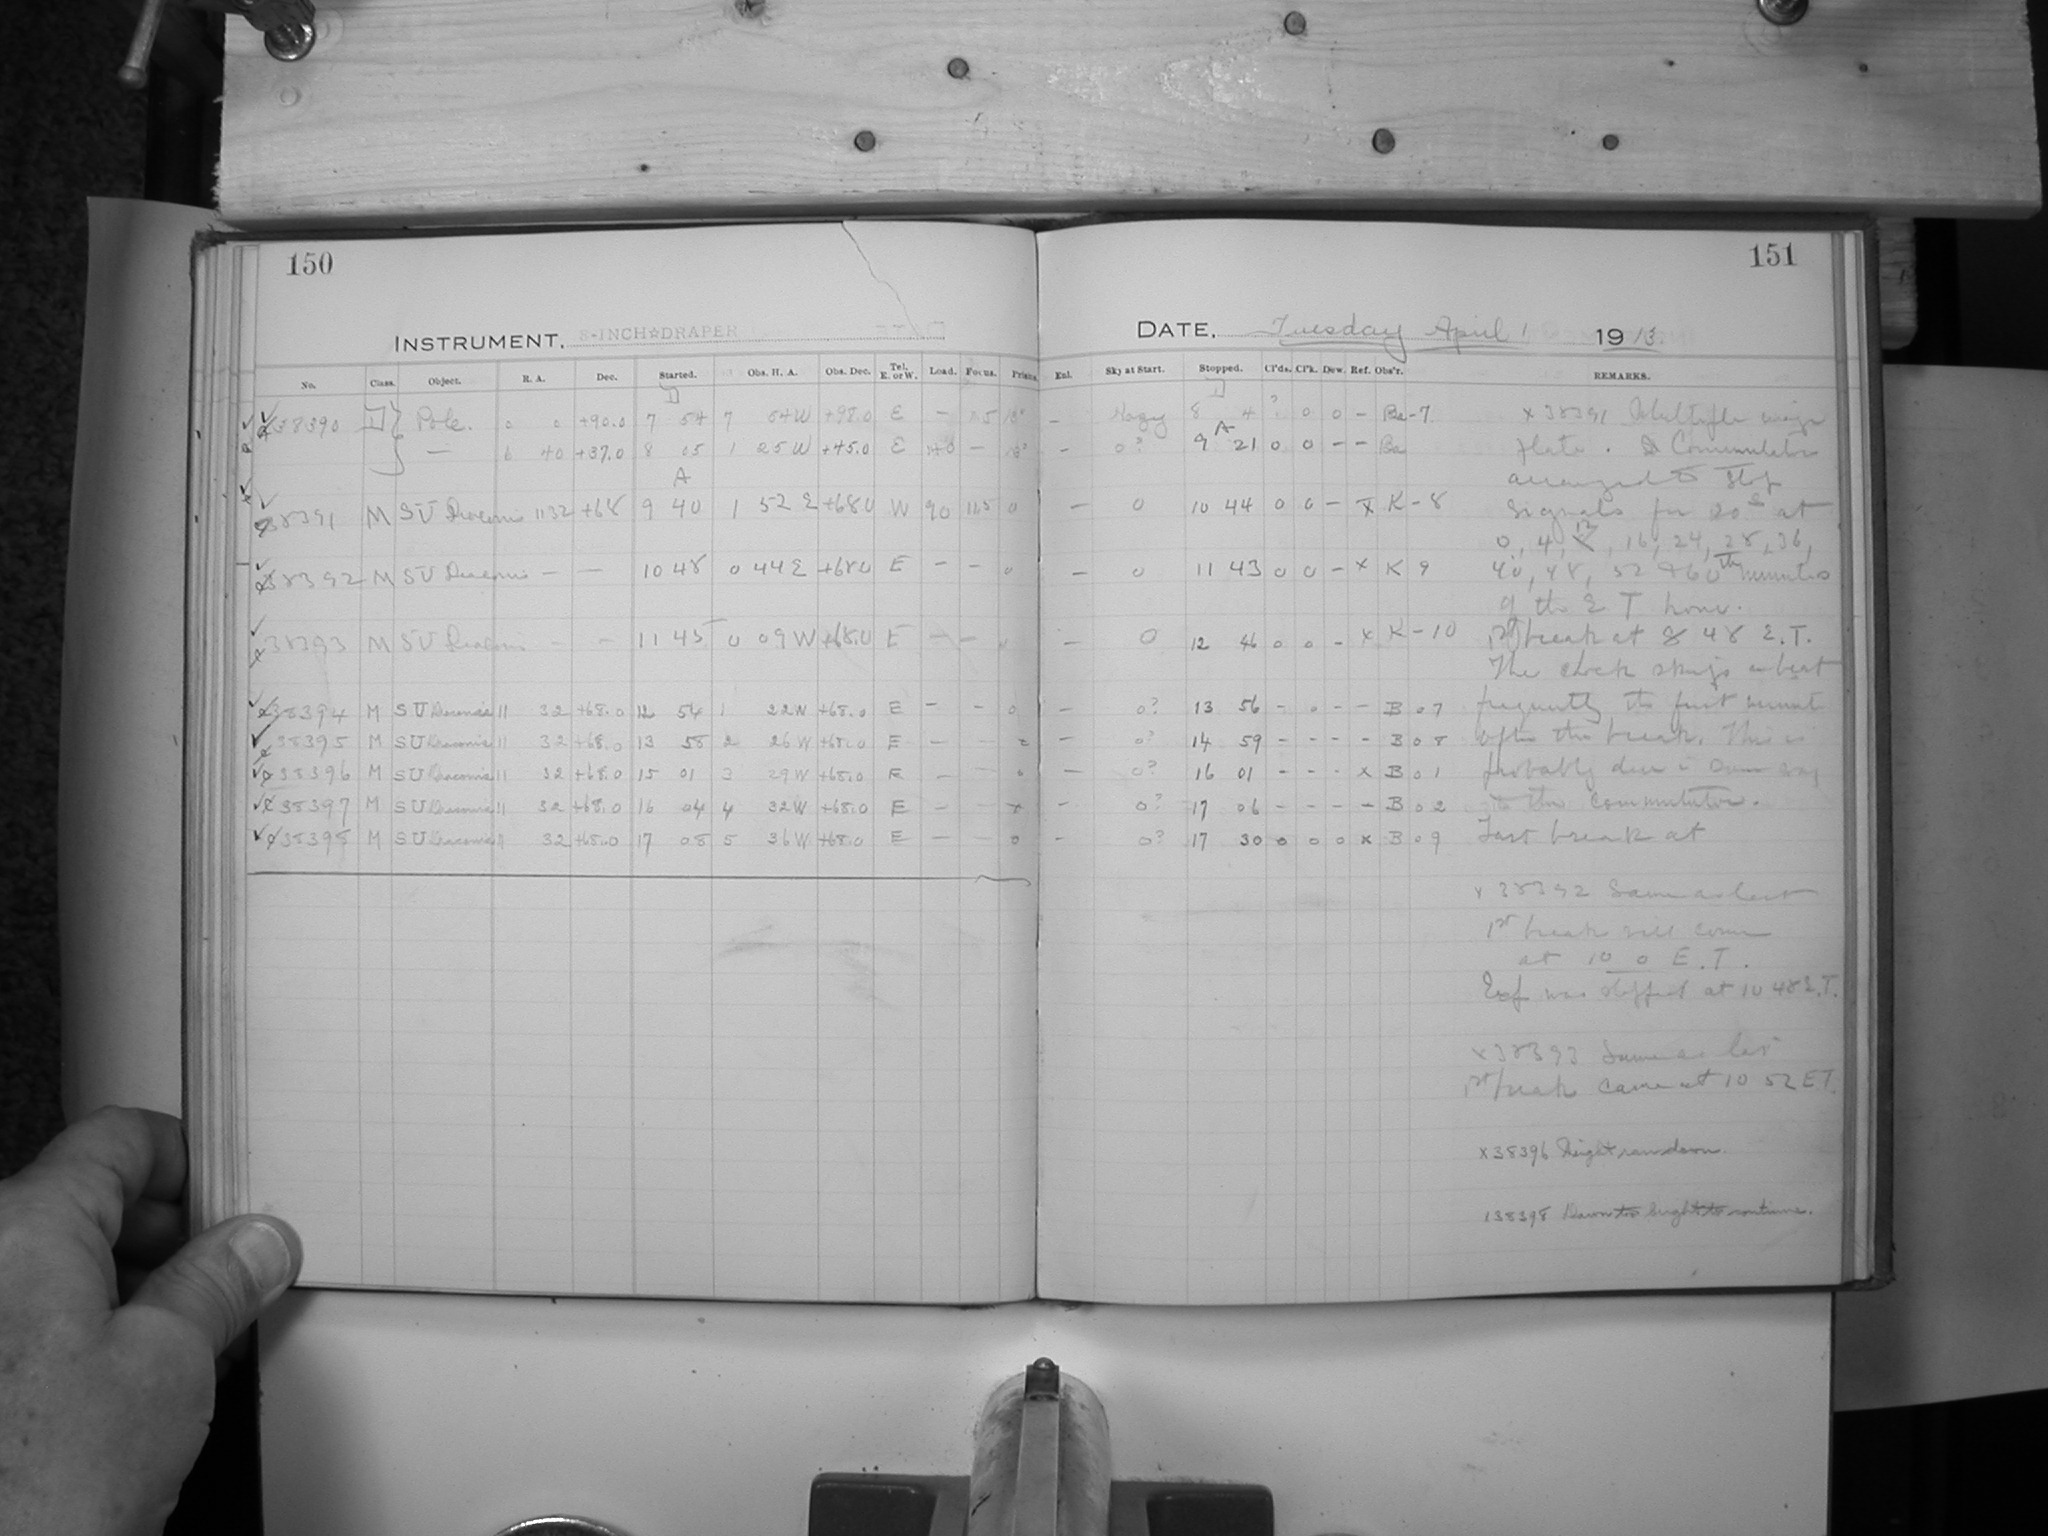 150
151
INSTRUMENT. 8-INCH☆DRAPER
DATE. Tuesday April 1 1913.
No. Class. Object. R. A. Dec. Started. Obs. H. A. Obs. Dec. Tel. E. or W. Load. Focus. Prism. Enl. Sky at Start. Stopped. Cl'ds. Cl'k. Dew. Ref. Obs'r. REMARKS.
38390 D Pole. 0 0 +90.0 7 54 7 54 W +98.0 E - - Hazy 8 4 ? 0 0 - Ba-7
— 6 40 +37.0 8 05 1 25 W +45.0 E - - 0? 9 21 0 0 - - Ba
A
38391 M SU Draconis 11 32 +68 9 40 1 52 E +68.0 W 90 11.5 0 - 0 10 44 0 0 - X K-8
38392 M SU Draconis - - 10 48 0 44 E +68.0 E - - 0 - 0 11 43 0 0 - x K 9
38393 M SU Draconis - - 11 45 0 09 W +68.0 E - - - 0 12 46 0 0 - x K-10
38394 M SU Draconis 11 32 +68.0 12 54 1 22W +68.0 E - - 0 - 0? 13 56 - 0 - - B 07
38395 M SU Draconis 11 32 +68.0 13 58 2 26W +68.0 E - - - 0? 14 59 - - - - B 08
38396 M SU Draconis 11 32 +68.0 15 01 3 29W +68.0 E - - - 0? 16 01 - - - x B 01
38397 M SU Draconis 11 32 +68.0 16 04 4 32W +68.0 E - - - 0? 17 06 - - - - B 02
38398 M SU Draconis 11 32 +68.0 17 08 5 36W +68.0 E - - 0 - 0? 17 30 0 0 0 x B 09
x 38391 Multiple image
plate. Commutator
arranged to stop
signals for 20s at
0, 4, 12, 16, 24, 28, 36,
40, 48, 52 + 60th minutes
of the E T hour.
1st break at 8 48 E.T.
The clock skips a beat
frequently the first minute
after the break. This is
probably due in some way
to the commutator.
Last break at
x 38392 Same as last
1st break will come
at 10 0 E.T.
Exp was stopped at 10 48 E.T.
x 38393 Same as last
1st break came at 10 52 E T.
x 38396 Weight ran down.
x 38398 Dawn too bright to continue.